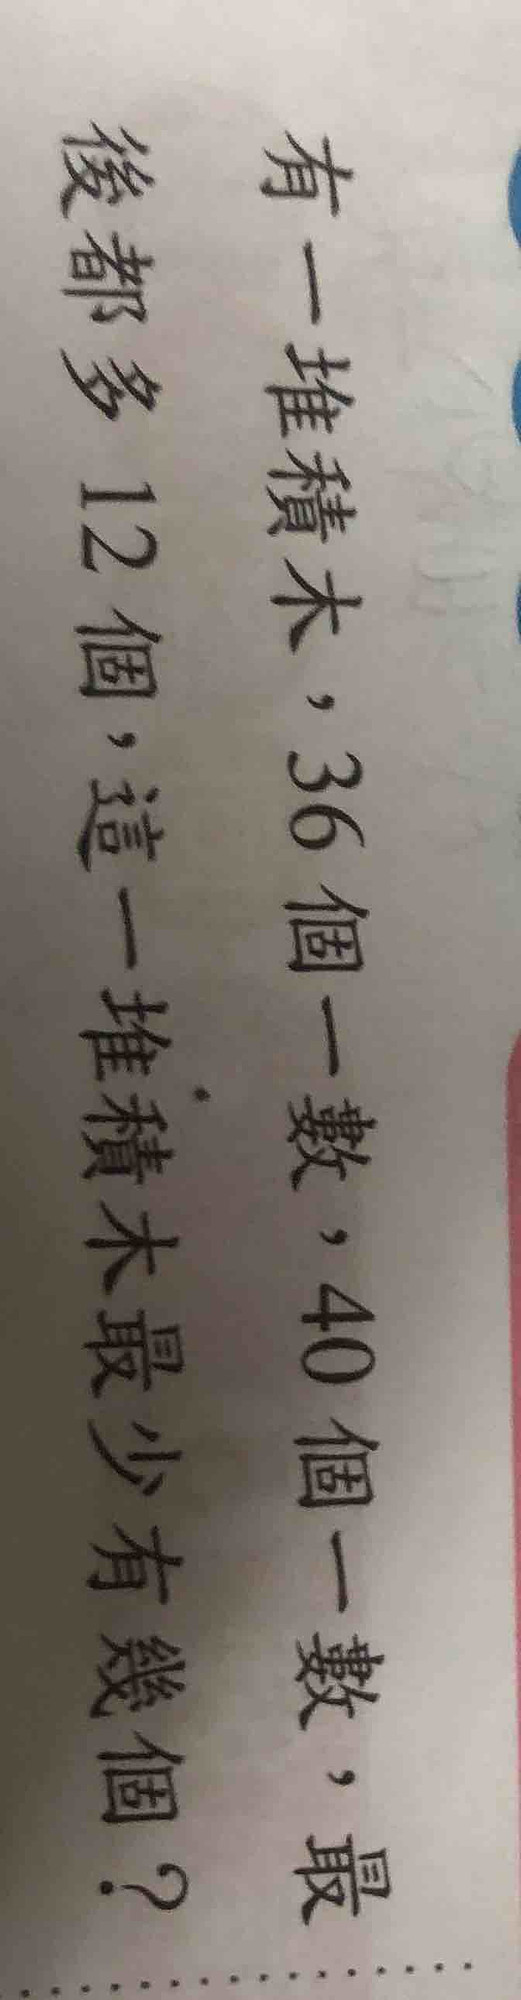 有一堆積木，36個一數，40個一數，最
後都多12個，這一堆積木最少有幾個？